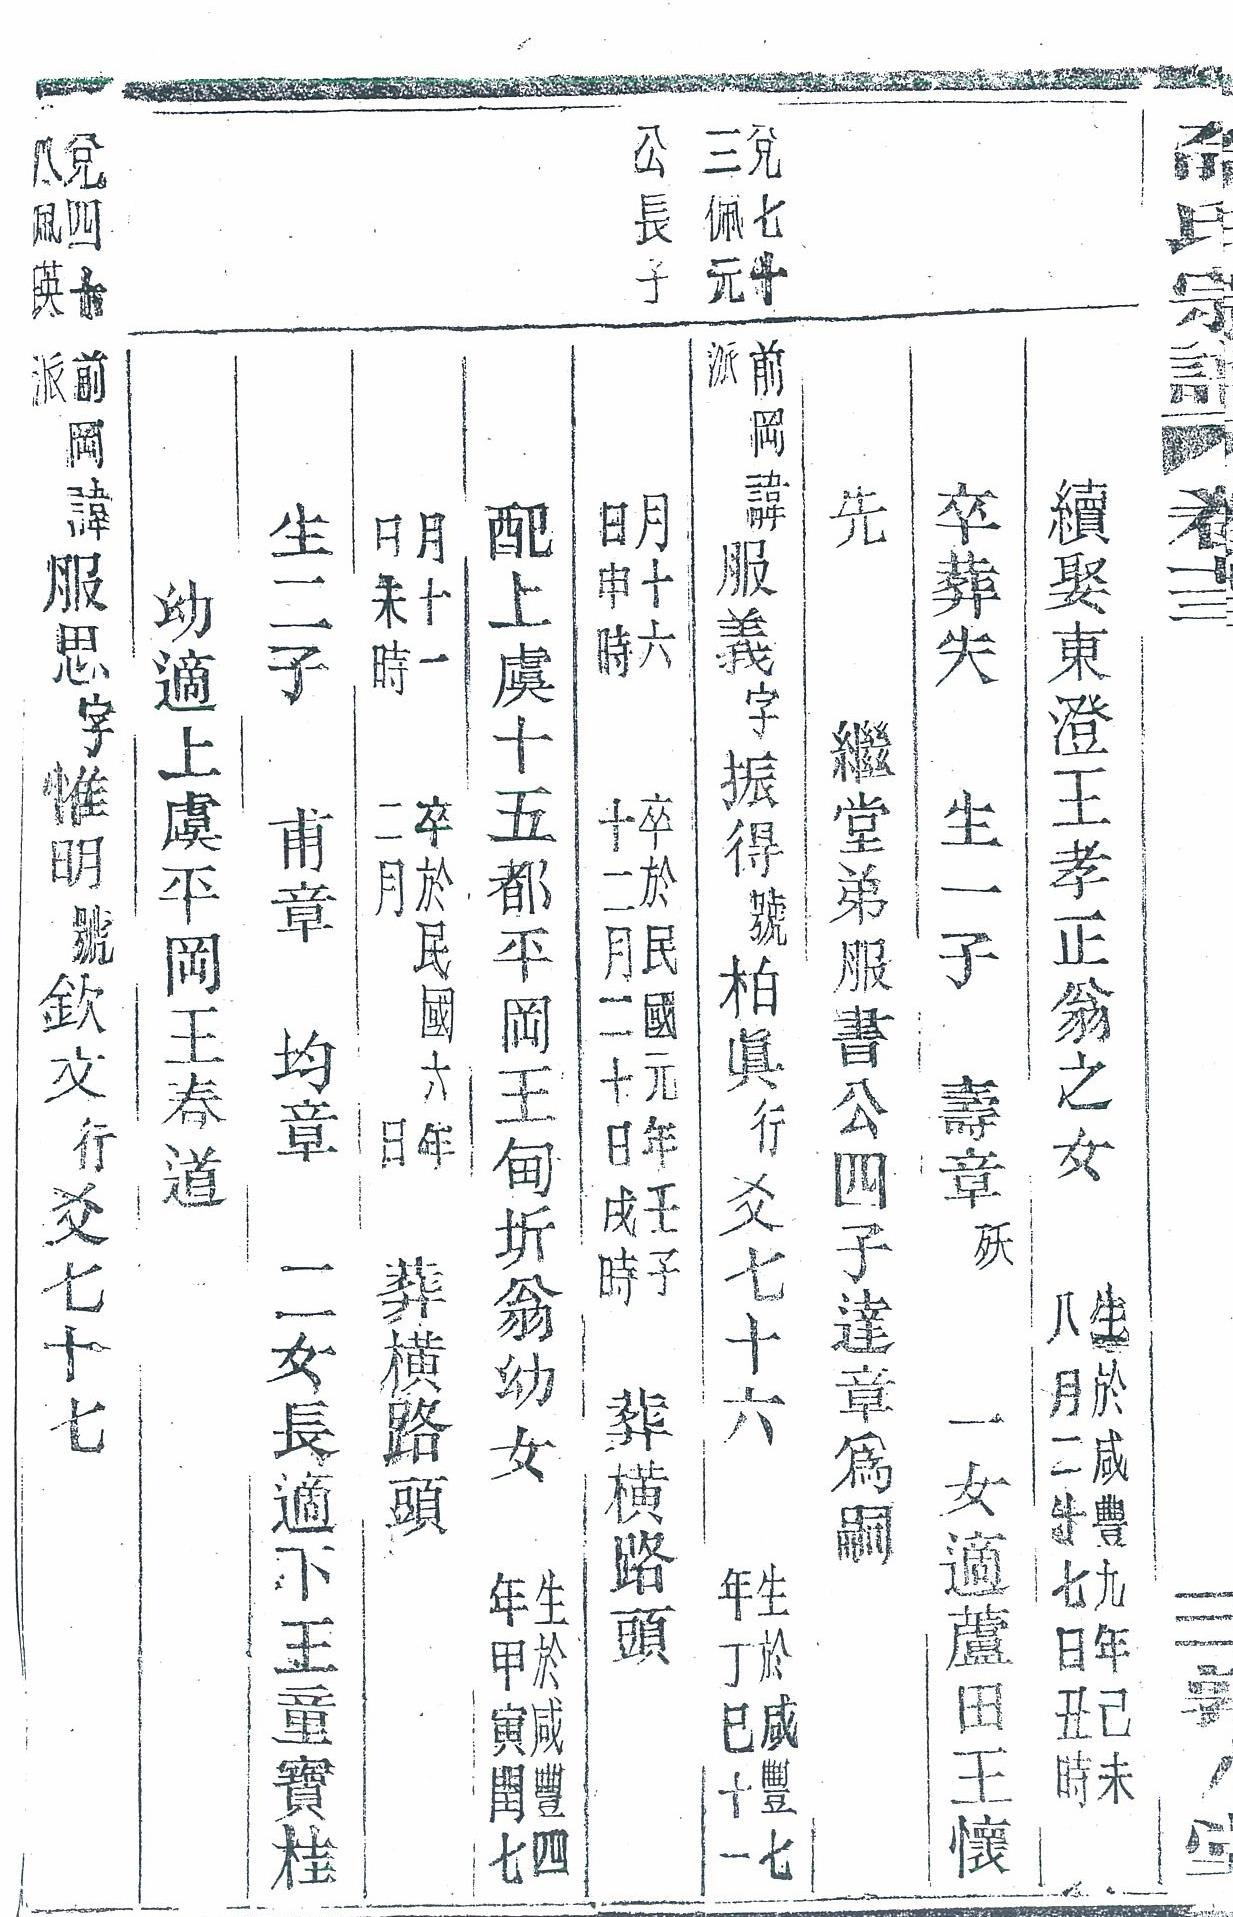 氏宗譜 卷三
續娶東澄王孝正翁之女 生於咸豐九年己未八月二十七日丑時
卒葬失 生一子 壽章 殀 一女適蘆田王懷
先 繼堂弟服書公四子達章爲嗣
兌七十三佩元公長子
前岡派諱服義字振得號柏眞行爻七十六 生於咸豐七年丁巳十一
月十六日申時 卒於民國元年壬子十二月二十日戌時 葬橫路頭
配上虞十五都平岡王甸圻翁幼女 生於咸豐四年甲寅閏七
月十一日未時 卒於民國六年二月 日 葬橫路頭
生二子 甫章 均章 二女長適下王童寶桂
幼適上虞平岡王春道
兌四十八佩英
前岡派諱服思字惟明號欽文行爻七十七